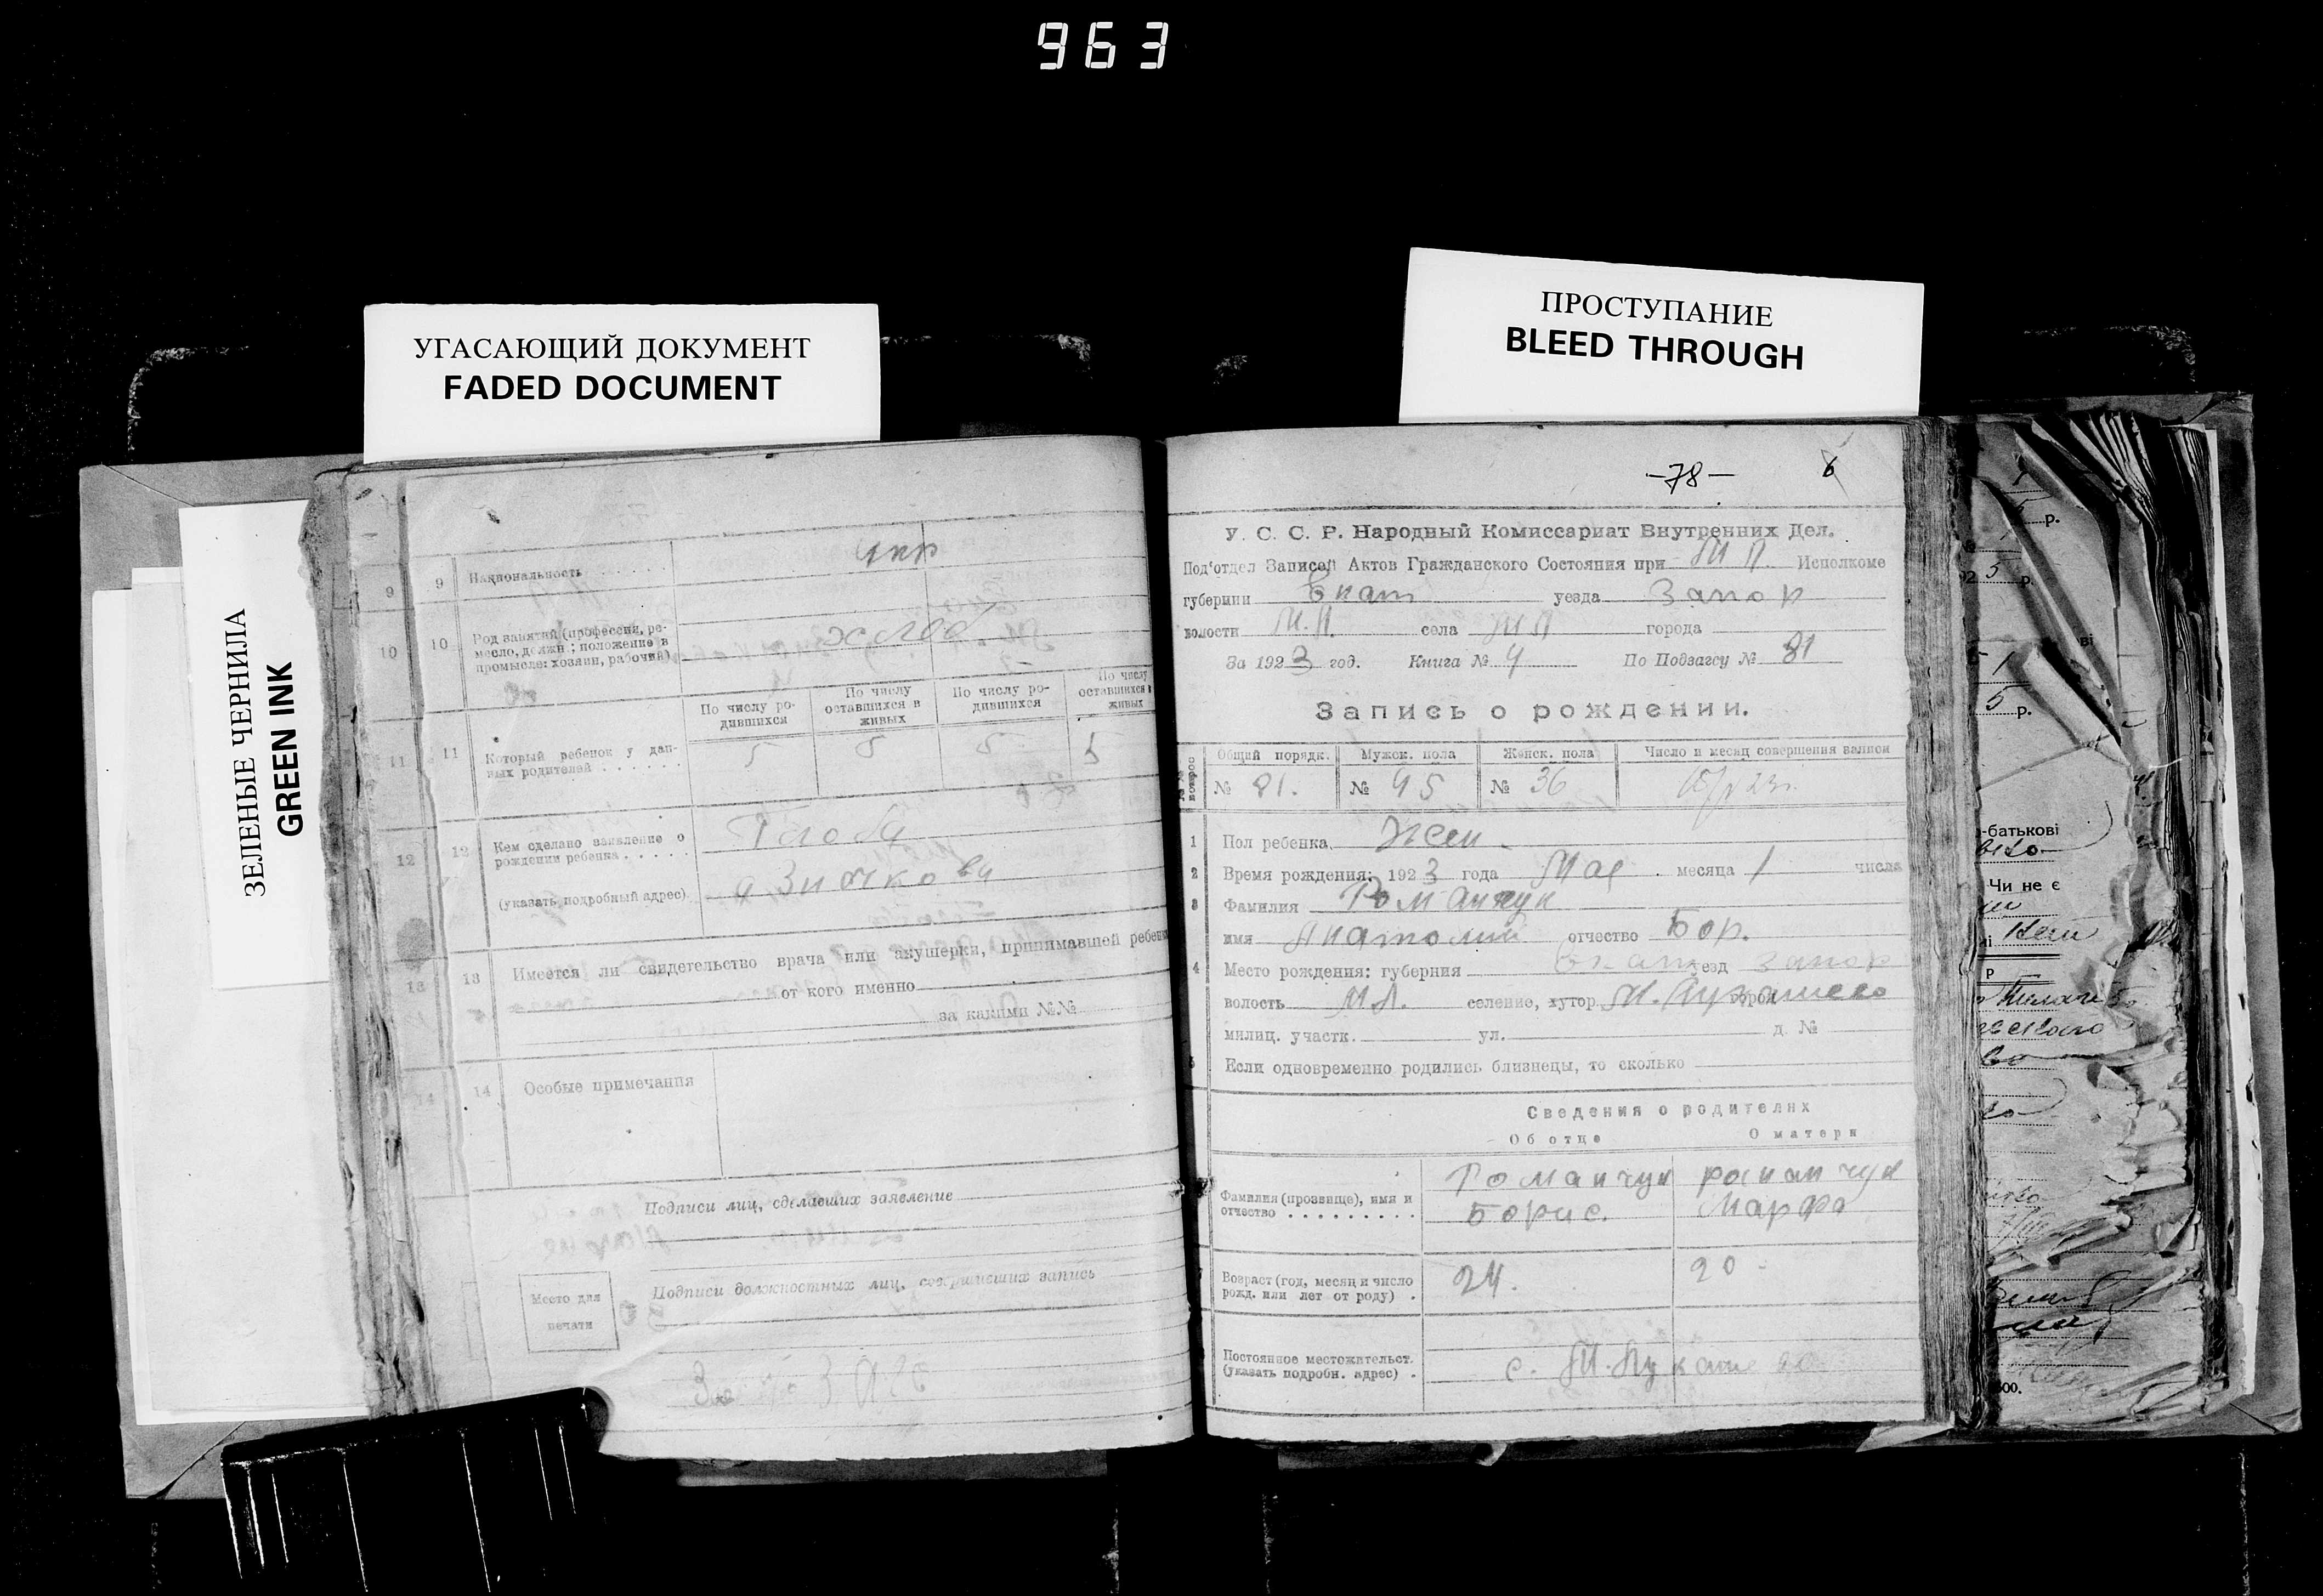 963
УГАСАЮЩИЙ ДОКУМЕНТ
FADED DOCUMENT
ПРОСТУПАНИЕ
BLEED THROUGH
ЗЕЛЕНЫЕ ЧЕРНИЛА
GREEN INK
9 9 Национальность укр
10 10 Род занятий (профессия, ре-
месло, должн.; положение в
промысле: хозяин, рабочий) хлеб
По числу ро-
дившихся
По числу
оставшихся в
живых
По числу ро-
дившихся
По числу
оставшихся в
живых
11 11 Который ребенок у дан-
ных родителей 5 5 5 5
12 12 Кем сделано заявление о
рождении ребенка
(указать подробный адрес)
13 13 Имеется ли свидетельство врача или акушерки, принимавшей ребенка
от кого именно
за какими №№
14 14 Особые примечания
Подписи лиц, сделавших заявление
Подписи должностных лиц, совершивших запись
Место для
печати
-78- 6
У. С. С. Р. Народный Комиссариат Внутренних Дел.
Под'отдел Записей Актов Гражданского Состояния при М П. Исполкоме
губернии Екат уезда Запор
волости М. Л. села М Л города
За 1923 год. Книга № 4 По Подзагсу № 81
Запись о рождении.
Общий порядк. Мужск. пола Женск. пола Число и месяц совершения записи
№ 81. № 45 № 36
1 Пол ребенка Жен.
2 Время рождения: 1923 года Мая месяца 1 числа
3 Фамилия Романчук
имя Анатолий отчество Бор.
4 Место рождения: губерния Екат уезд Запор
волость М.Л. селение, хутор М. Лукашево
милиц. участк. ул. д. №
5 Если одновременно родились близнецы, то сколько
Сведения о родителях
Об отце О матери
Фамилия (прозвище), имя и
отчество
Романчук Романчук
Борис. Марфа
Возраст (год, месяц и число
рожд. или лет от роду) 24. 20
Постоянное местожительст.
(указать подробн. адрес) с. М. Лукашево
р.
5 р.
5 р.
-батькові
Чи не є